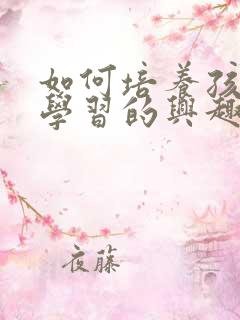 如何培養孩
學習的興趣
夜藤